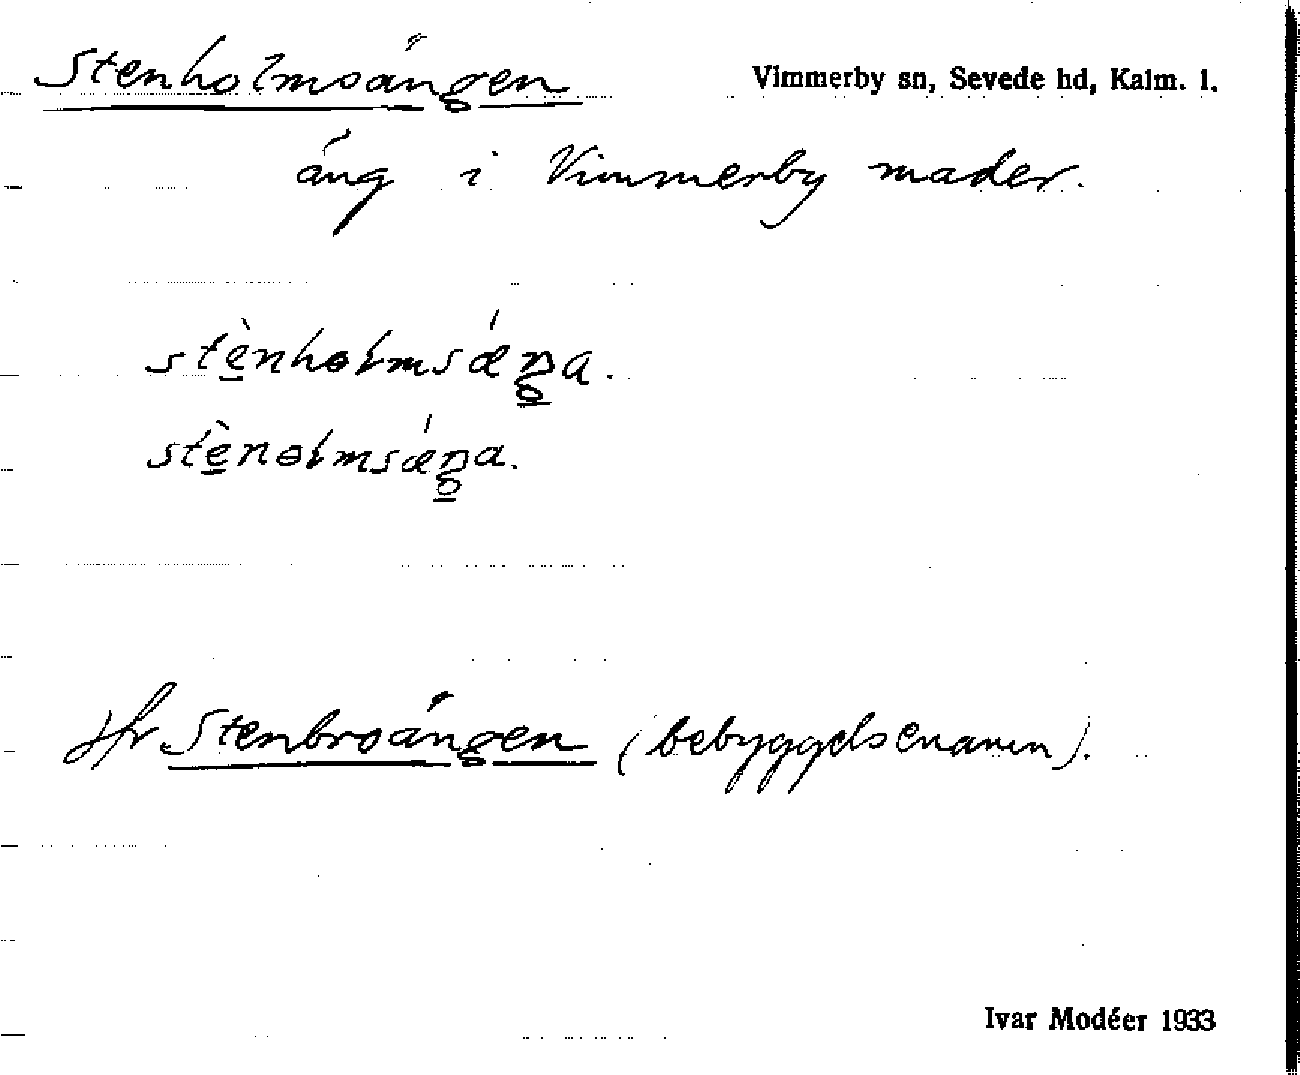 Stenholmsängen
Vimmerby sn, Sevede hd, Kalm. l.
äng i Vimmerby mader.
stè̱nhɵlmsǽŋa.
stè̱nɵlmsǽŋa.
Jfr Stenbroängen (bebyggelsenamn).
Ivar Modéer 1933